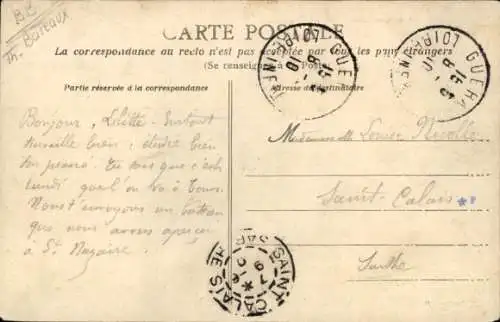 BB
Th. Bareaux
CARTE POSTALE
La correspondance au recto n'est pas acceptée par tous les pays étrangers
(Se renseigner à la Poste)
Partie réservée à la correspondance
Adresse du destinataire
GUÉRA
LOIRE INF
Bonjour, Surtout
travaille bien; étudie bien
ton piano. Tu sais que c'est
lundi qu'on va à Tours.
Nous t'envoyons un bateau
que nous avons aperçu
à St Nazaire.
Mademoiselle Louise
Saint-Calais
Sarthe
SAINT CALAIS
SARTHE